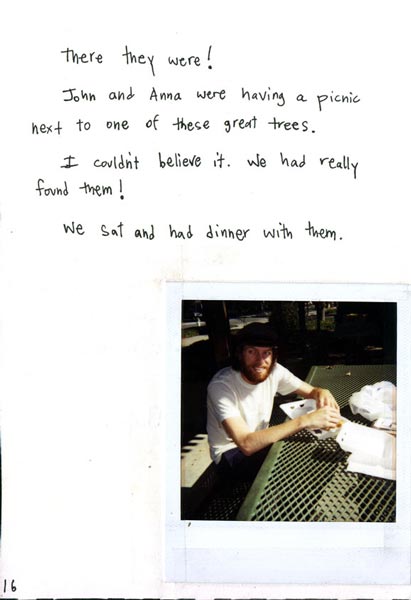 There they were!
John and Anna were having a picnic
next to one of these great trees.
I couldn't believe it. We had really
found them!
We sat and had dinner with them.
16